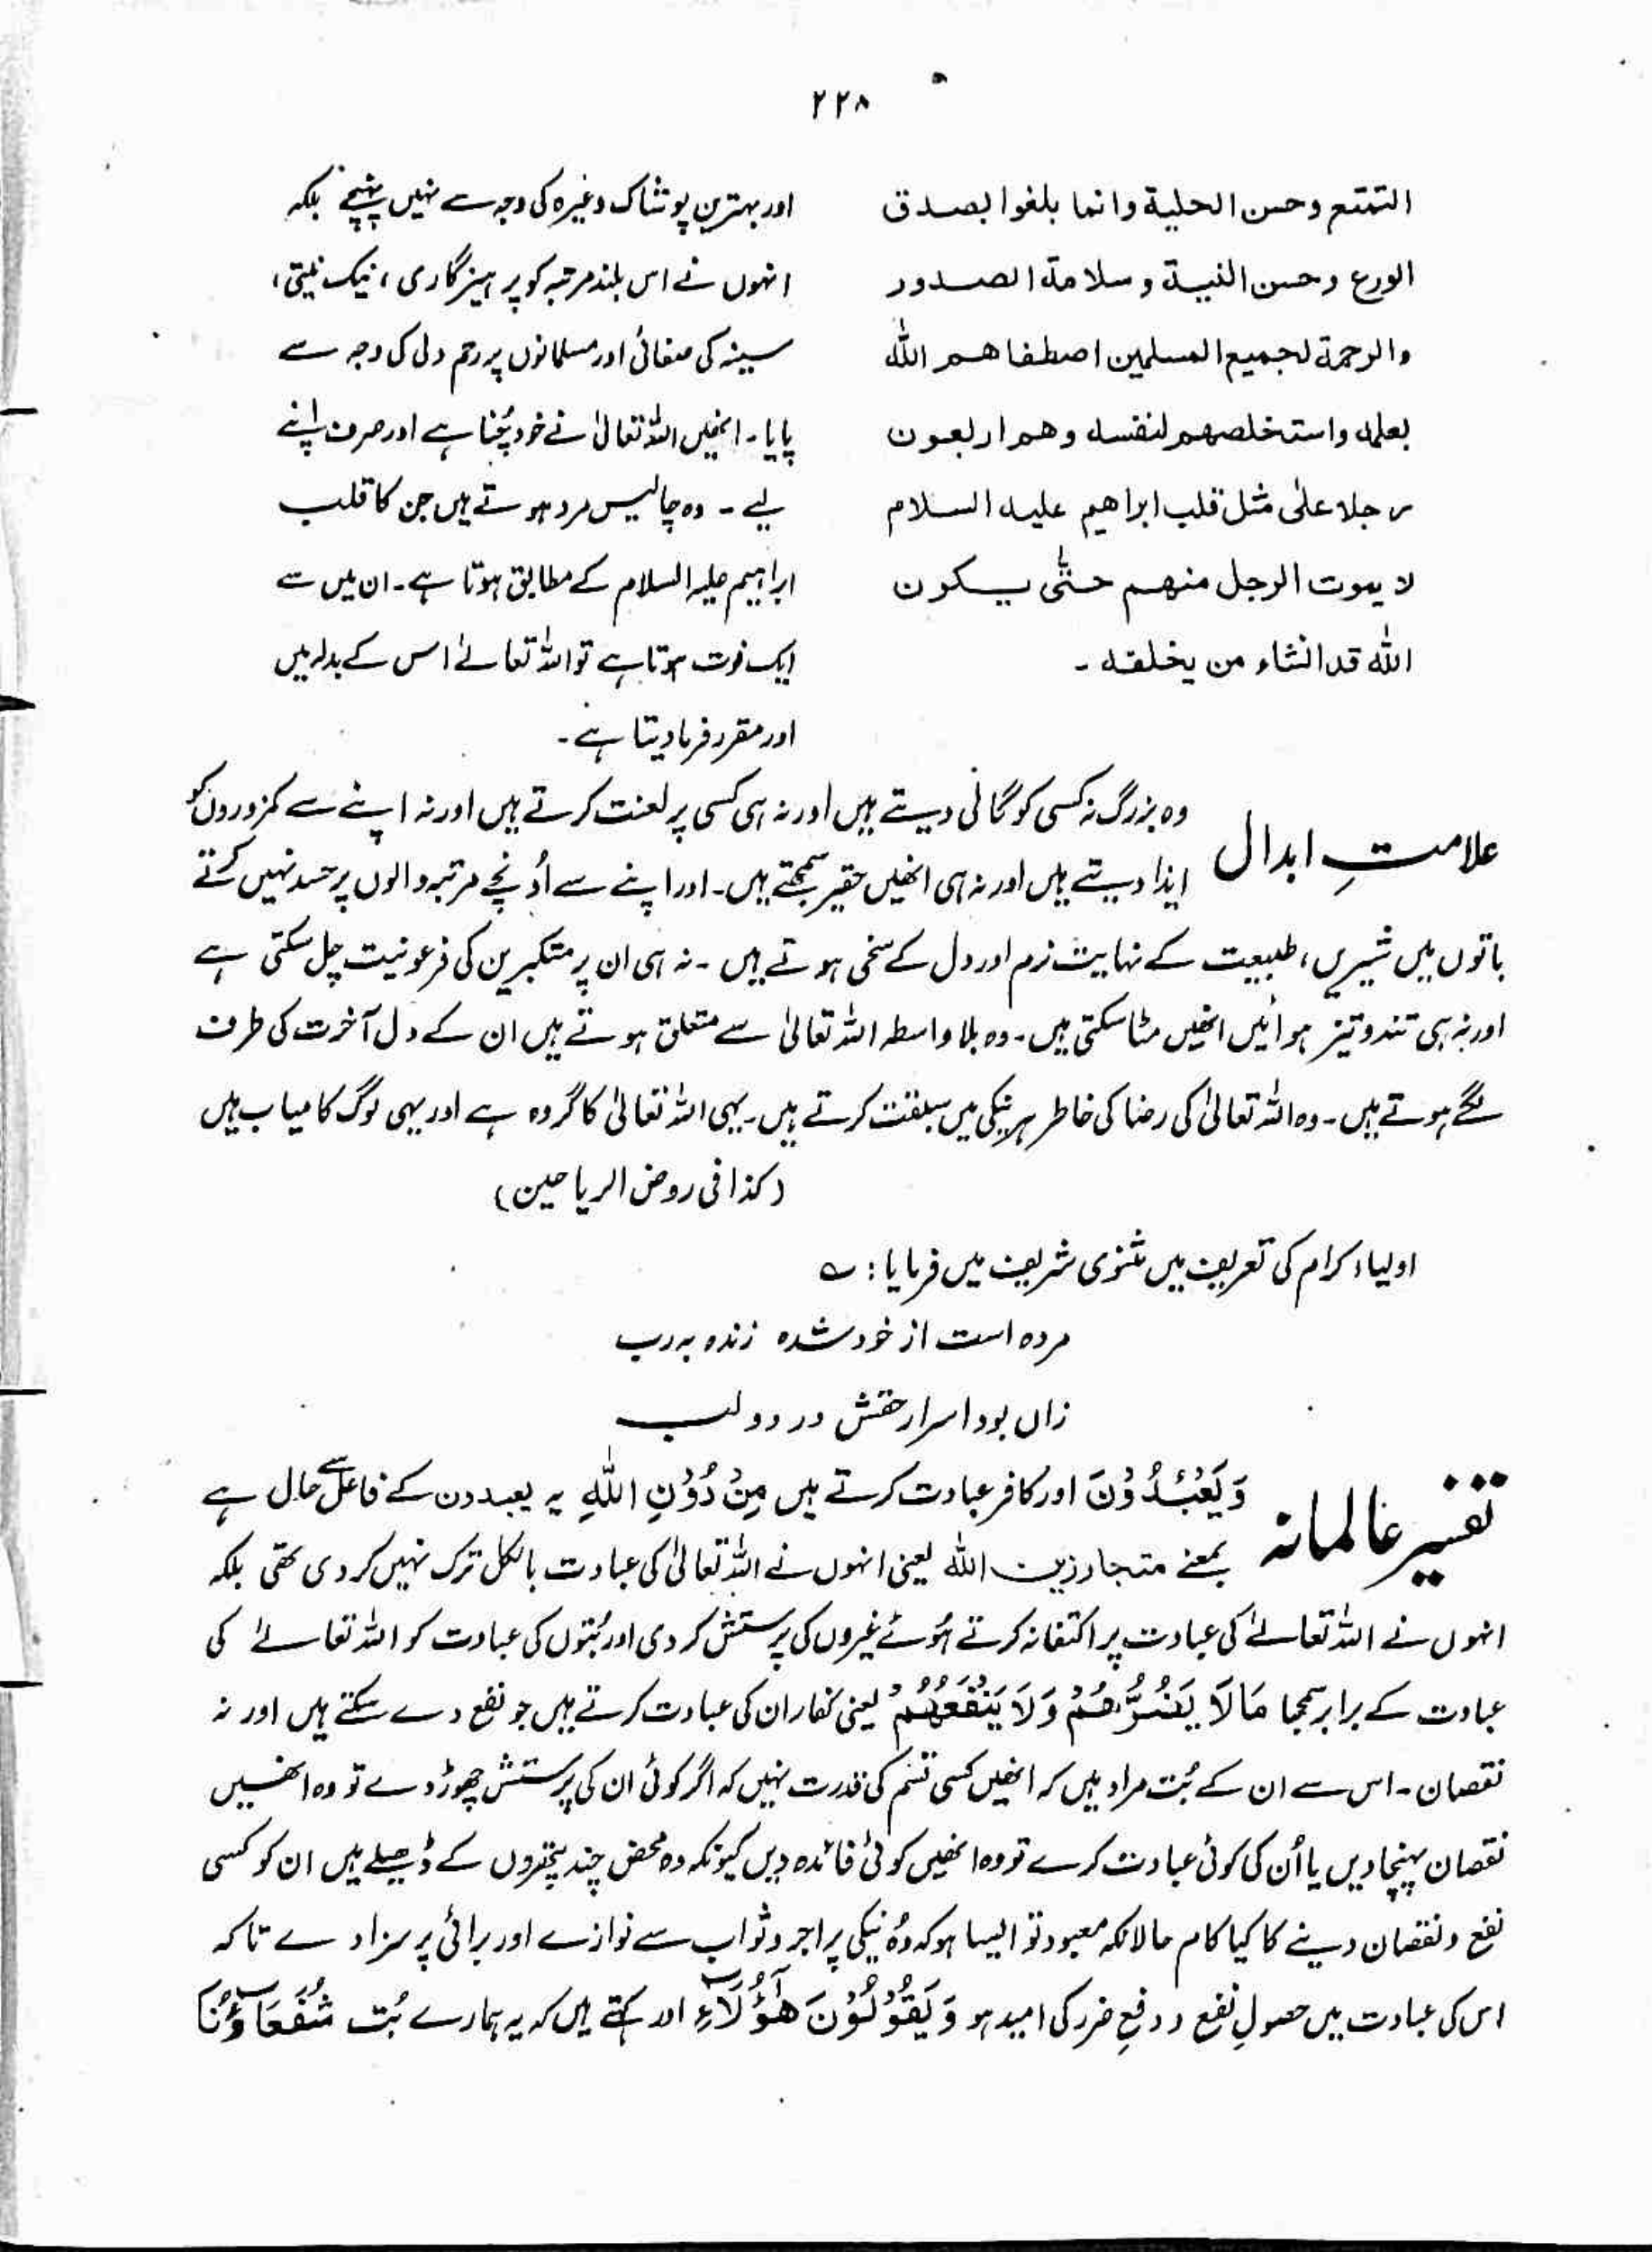 ۲۲۸
التمتع وحسن الحلية وانما بلغوا بصدق
الورع وحسن النية وسلامة الصدور
والرحمة لجميع المسلمين اصطفاهم الله
بعلمه واستخلصهم لنفسه وهم اربعون
رجلا علی مثل قلب ابراهيم عليه السلام
لا يموت الرجل منهم حتّٰی يكون
الله قد انشاء من يخلفه ۔
اور بہترین پوشاک وغیرہ کی وجہ سے نہیں پہنچے بلکہ
انہوں نے اس بلند مرتبہ کو پرہیزگاری ، نیک نیتی ،
سینہ کی صفائی اور مسلمانوں پر رحم دلی کی وجہ سے
پایا ۔ انھیں اللہ تعالیٰ نے خود چُنا ہے اور صرف اپنے
لیے ۔ وہ چالیس مرد ہوتے ہیں جن کا قلب
ابراہیم علیہ السلام کے مطابق ہوتا ہے ۔ ان میں سے
ایک فوت ہوتا ہے تو اللہ تعالےٰ اس کے بدلہ میں
اور مقرر فرما دیتا ہے ۔
علامتِ ابدال
وہ بزرگ نہ کسی کو گالی دیتے ہیں اور نہ ہی کسی پر لعنت کرتے ہیں اور نہ اپنے سے کمزوروں کو
ایذا دیتے ہیں اور نہ ہی انھیں حقیر سمجھتے ہیں ۔ اور اپنے سے اُونچے مرتبہ والوں پر حسد نہیں کرتے
باتوں میں شیریں ، طبیعت کے نہایت نرم اور دل کے سخی ہوتے ہیں ۔ نہ ہی ان پر متکبرین کی فرعونیت چل سکتی ہے
اور نہ ہی تند و تیز ہوائیں انھیں مٹا سکتی ہیں ۔ وہ بلا واسطہ اللہ تعالیٰ سے متعلق ہوتے ہیں ان کے دل آخرت کی طرف
لگے ہوتے ہیں ۔ وہ اللہ تعالیٰ کی رضا کی خاطر ہر نیکی میں سبقت کرتے ہیں ۔ یہی اللہ تعالیٰ کا گروہ ہے اور یہی لوگ کامیاب ہیں
(کذا فی روض الریاحین)
اولیاء کرام کی تعریف میں مثنوی شریف میں فرمایا : ؎
مردہ است از خود شدہ زندہ بہ رب
زاں بود اسرار حقش در دو لب
تفسیر عالمانہ
وَيَعْبُدُوْنَ اور کافر عبادت کرتے ہیں مِنْ دُوْنِ اللّٰهِ یہ یعبدون کے فاعل سے حال ہے
بمعنے متجاوزین اللہ یعنی انہوں نے اللہ تعالیٰ کی عبادت بالکل ترک نہیں کر دی تھی بلکہ
انہوں نے اللہ تعالےٰ کی عبادت پر اکتفا نہ کرتے ہُوئے غیروں کی پرستش کر دی اور بُتوں کی عبادت کو اللہ تعالےٰ کی
عبادت کے برابر سمجھا مَا لَا يَضُرُّهُمْ وَلَا يَنْفَعُهُمْ یعنی کفار ان کی عبادت کرتے ہیں جو نفع دے سکتے ہیں اور نہ
نقصان ۔ اس سے ان کے بُت مراد ہیں کہ انھیں کسی قسم کی قدرت نہیں کہ اگر کوئی ان کی پرستش چھوڑ دے تو وہ انھیں
نقصان پہنچا دیں یا اُن کی کوئی عبادت کرے تو وہ انھیں کوئی فائدہ دیں کیونکہ وہ محض چند پتھروں کے ڈھیلے ہیں ان کو کسی
نفع و نقصان دینے کا کیا کام حالانکہ معبود تو ایسا ہو کہ وُہ نیکی پر اجر و ثواب سے نوازے اور برائی پر سزا دے تاکہ
اس کی عبادت میں حصولِ نفع و دفعِ ضرر کی امید ہو وَيَقُوْلُوْنَ هٰٓؤُلَآءِ اور کہتے ہیں کہ یہ ہمارے بُت شُفَعَآؤُنَا